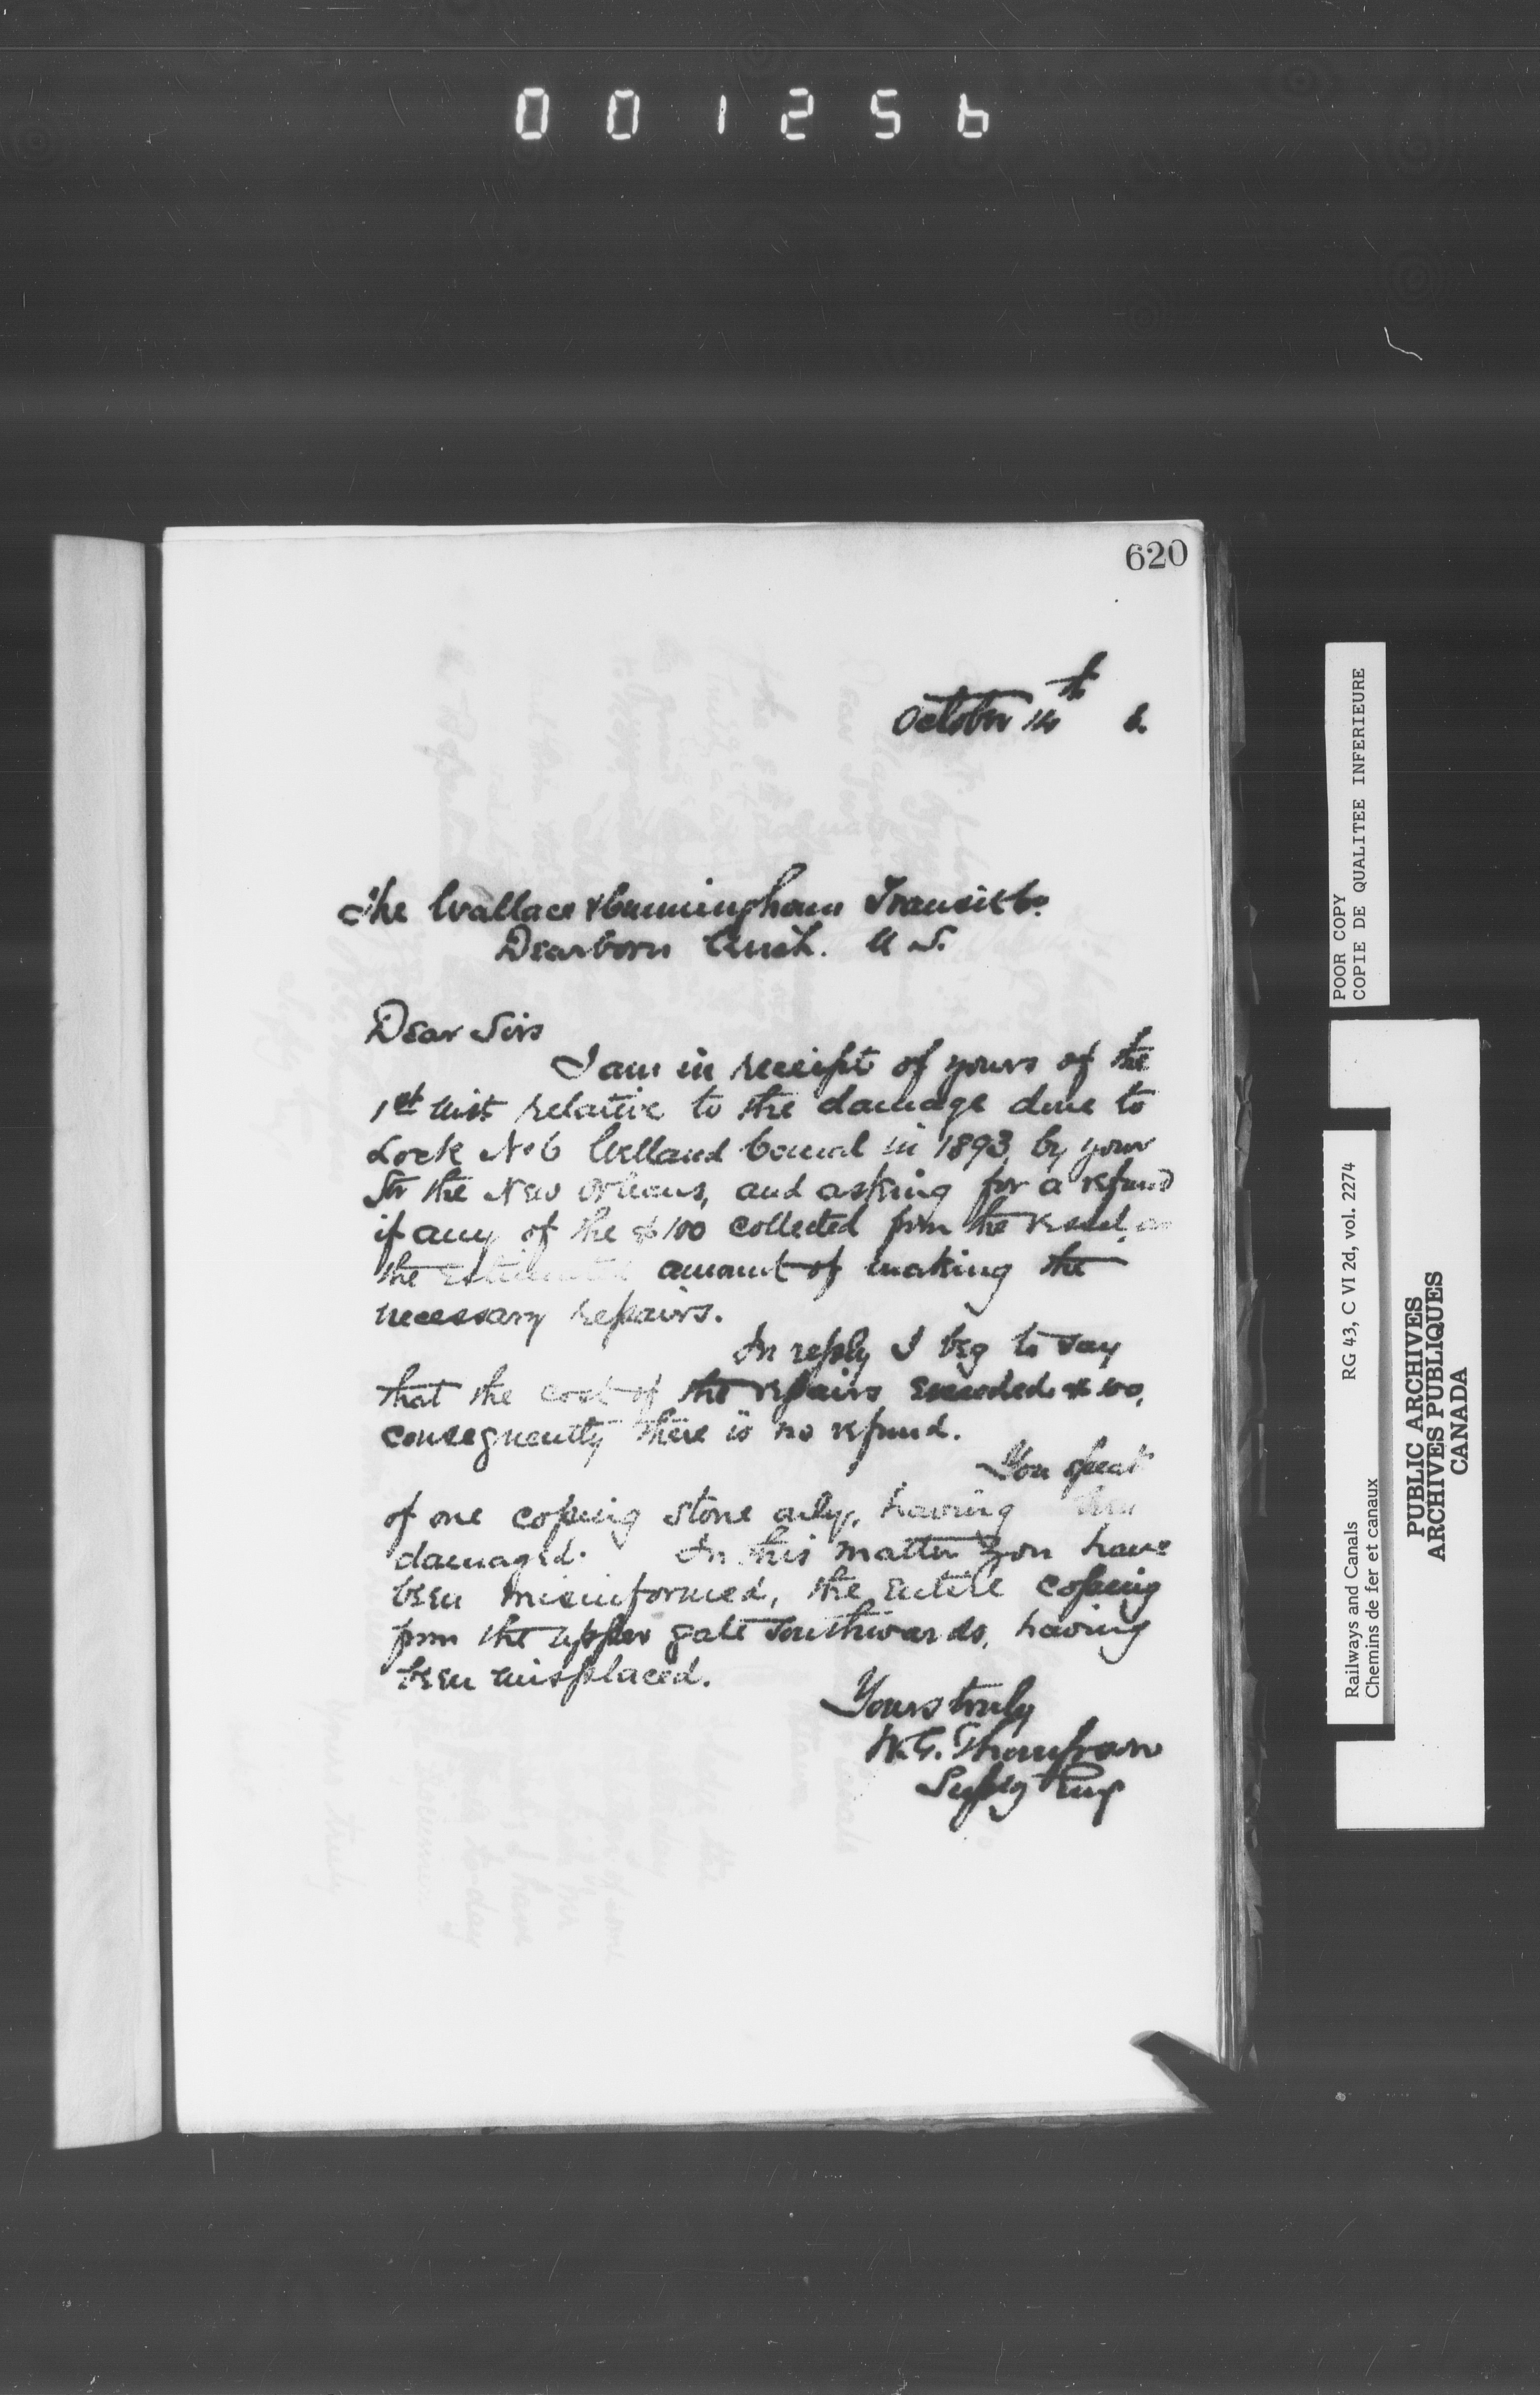 001256
620
October 14th 6.
The Wallace & Cunningham Transit Co.
Dearborn Mich. U S.
Dear Sirs
I am in receipt of yours of the
1st inst relative to the damage done to
Lock No 6 Welland Canal in 1893, by your
Str the New Orleans, and asking for a refund
if any of the $100 collected from the vessel, as
the estimated amount of making the
necessary repairs.
In reply I beg to say
that the cost of the repairs exceeded $100,
consequently there is no refund.
You speak
of one coping stone only, having been
damaged. In this matter you have
been misinformed, the entire coping
from the upper gate southwards, having
been misplaced.
Yours truly
W.G. Thompson
Suptg Eng
POOR COPY
COPIE DE QUALITEE INFERIEURE
Railways and Canals RG 43, C VI 2d, vol. 2274
Chemins de fer et canaux
PUBLIC ARCHIVES
ARCHIVES PUBLIQUES
CANADA